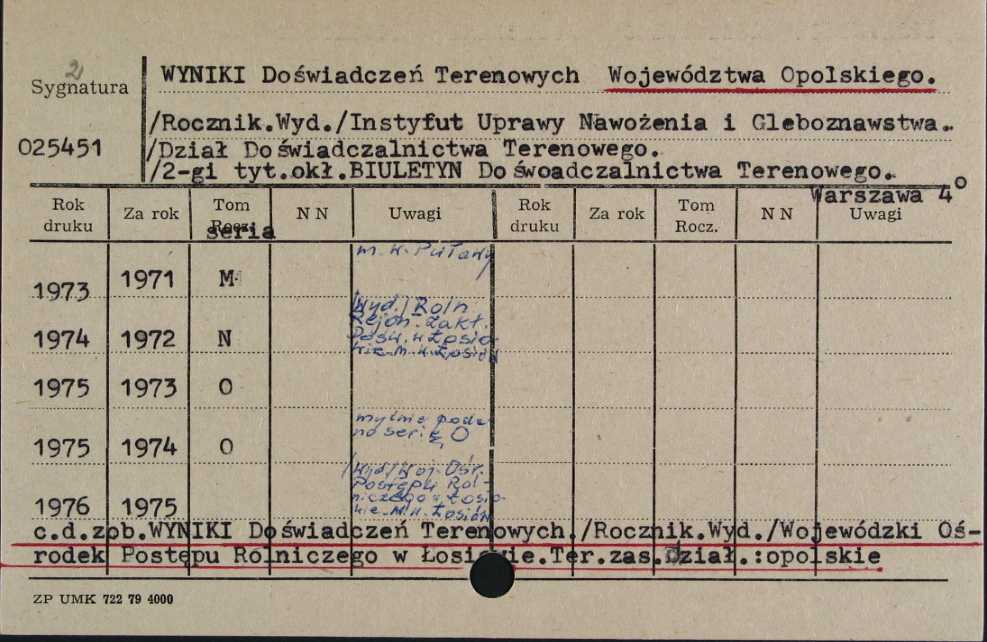 2
Sygnatura
WYNIKI Doświadczeń Terenowych Województwa Opolskiego.
/Rocznik.Wyd./Instytut Uprawy Nawożenia i Gleboznawstwa.
025451
/Dział Doświadczalnictwa Terenowego.
/2-gi tyt.okł.BIULETYN Dośwoadczalnictwa Terenowego.
Warszawa 4°
Rok druku Za rok Tom Rocz. N N Uwagi Rok druku Za rok Tom Rocz. N N Uwagi
seria
m. w. Puławy
1973 1971 M
/Wyd./ Roln
Rejon. Zakł.
Dośw. w Łosio
wie. m. w. Łosiów
1974 1972 N
1975 1973 O
mylnie poda
no serię O
1975 1974 O
/Wyd/Woj. Ośr.
Postępu Rol-
niczego w Łosio
wie. M. w. Łosiów
1976 1975
c.d.zob.WYNIKI Doświadczeń Terenowych./Rocznik.Wyd./Wojewódzki Oś-
rodek Postępu Rolniczego w Łosiowie.Ter.zas.Dział.:opolskie
ZP UMK 722 79 4000